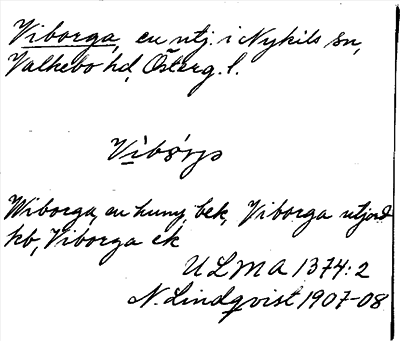 Viborga, en utj. i Nykils sn,
Valkebo hd, Österg. l.
Wiborga, en huny, bek, Viborga utjord
kb, Viborga ek
ULMA 1374:2
N. Lindqvist 1907-08